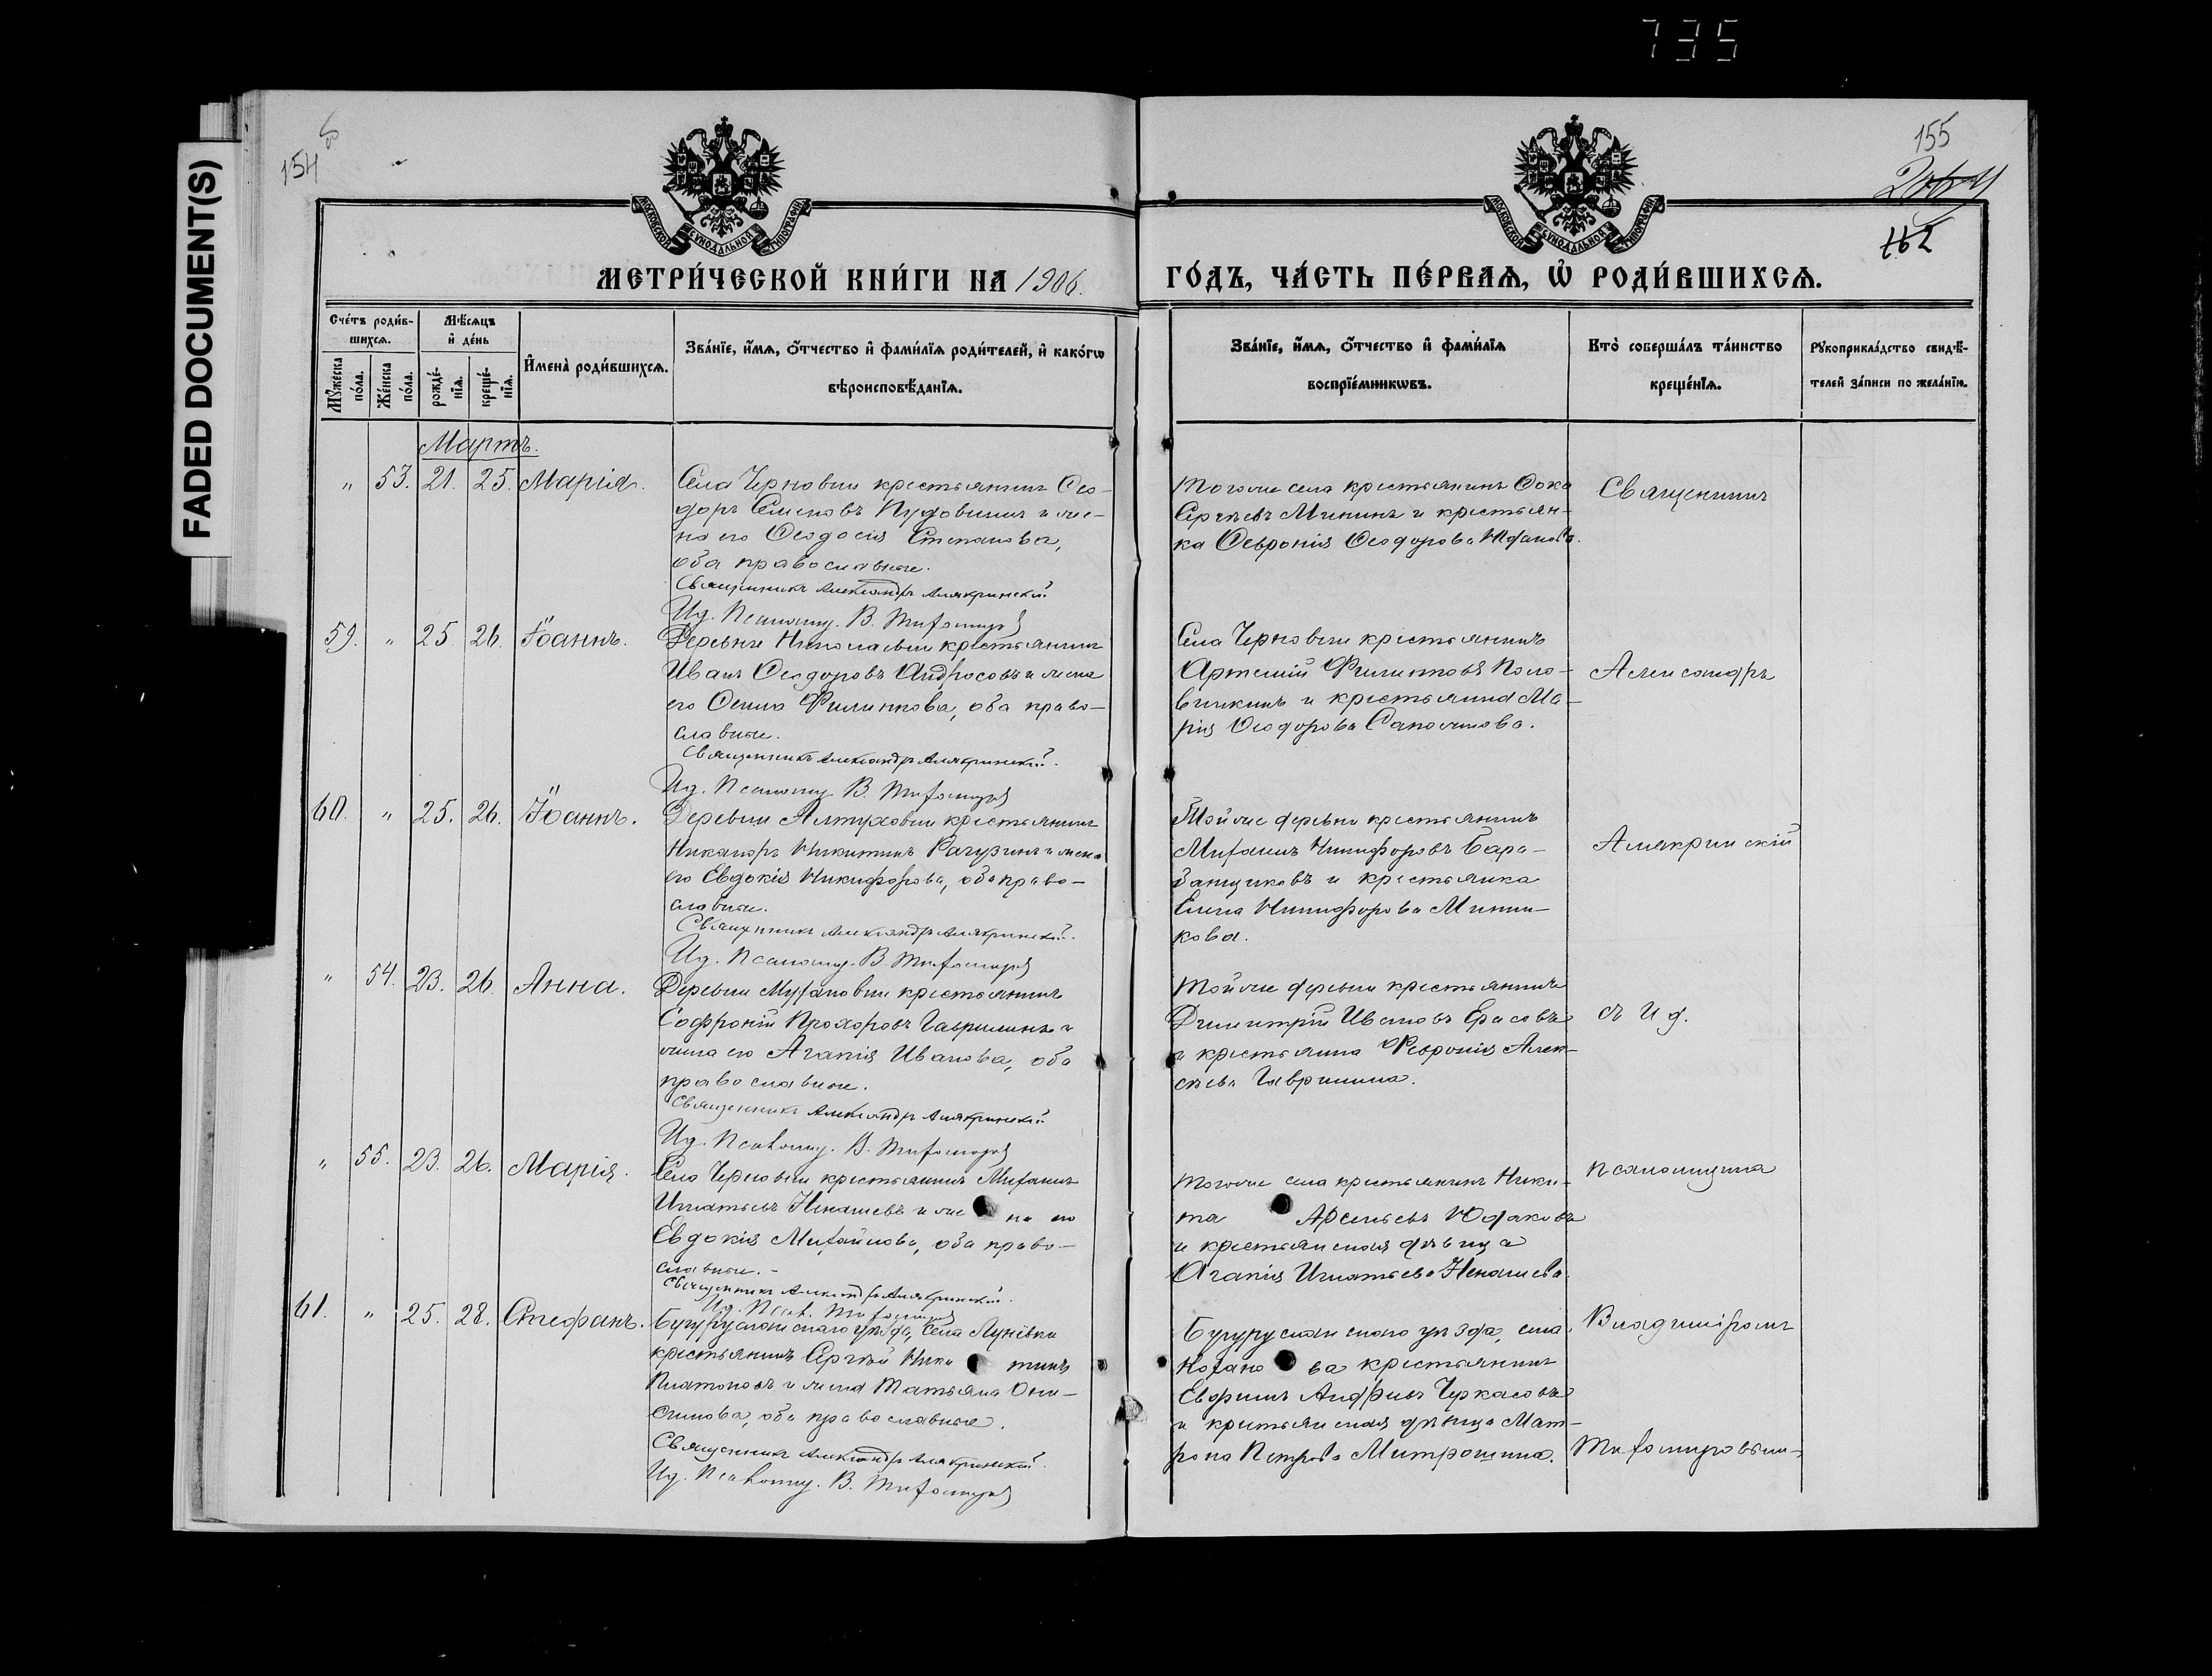 735
FADED DOCUMENT(S)
154
155
162
МОСКОВСКОЙ СУНОДАЛЬНОЙ ТИПОГРАФІИ
МОСКОВСКОЙ СУНОДАЛЬНОЙ ТИПОГРАФІИ
МЕТРИ́ЧЕСКОЙ КНИ́ГИ НА 1906.
ГО́ДЪ, ЧА́СТЬ ПЕ́РВАѦ, Ѡ҆ РОДИ́ВШИХСѦ.
Сче́тъ роди́в-
шихсѧ.
Мꙋ́жеска по́ла.
Же́нска по́ла.
Мѣ́сѧцъ
и҆ де́нь
рожде́-
нїѧ.
креще́-
нїѧ.
И҆мена̀ роди́вшихсѧ.
Зва́нїе, и҆́мѧ, ѻ҆́тчество и҆ фами́лїѧ роди́телей, и҆ како́гѡ
вѣроисповѣ́данїѧ.
Зва́нїе, и҆́мѧ, ѻ҆́тчество и҆ фами́лїѧ
воспрїе́мникѡвъ.
Кто̀ соверша́лъ та́инство
креще́нїѧ.
Рꙋкоприкла́дство свидѣ́-
телей за́писи по жела́нїю.
Мартъ.
" 53. 21. 25. Марія.
Села Черновки крестьянинъ Ѳео-
доръ Семеновъ Пудовкинъ и же-
на его Ѳеодосія Степанова,
оба православные.
Священникъ Александръ Алякринскій.
Ид. Псаломщ. В. Тихомировъ
Тогоже села крестьянинъ Ѳока
Сергѣевъ Мининъ и крестьян-
ка Ѳевронія Ѳеодорова Юдакова.
Священникъ
59. " 25. 26. Іоаннъ.
Деревни Николаевки крестьянинъ
Иванъ Ѳеодоровъ Андросовъ и жена
его Ѳекла Филиппова, оба право-
славные.
Священникъ Александръ Алякринскій.
Ид. Псаломщ. В. Тихомировъ
Села Черновки крестьянинъ
Артемій Филипповъ Поло-
винкинъ и крестьянка Ма-
рія Ѳеодорова Сапожкова.
Александръ
60. " 25. 26. Іоаннъ.
Деревни Алтуховки крестьянинъ
Никаноръ Никитинъ Рагузинъ и жена
его Евдокія Никифорова, оба право-
славные.
Священникъ Александръ Алякринскій.
Ид. Псаломщ. В. Тихомировъ
Тойже деревни крестьянинъ
Михаилъ Никифоровъ Бара-
банщиковъ и крестьянка
Елена Никифорова
кова.
Алякринскій
" 54. 23. 26. Анна.
Деревни Мухановки крестьянинъ
Софроній Прохоровъ Гаврилинъ и
жена его Агапія Иванова, оба
православные.
Священникъ Александръ Алякринскій
Ид. Псаломщ. В. Тихомировъ
Тойже деревни крестьянинъ
Димитрій Ивановъ Ерасовъ
и крестьянка Февронія Алек-
сѣева Гаврилина.
съ И. д.
" 55. 23. 26. Марія.
Села Черновки крестьянинъ Михаилъ
Игнатьевъ Ненашевъ и жена его
Евдокія Михайлова, оба право-
славные. -
Священникъ Александръ Алякринскій.
Ид. Псал. Тихомировъ
Тогоже села крестьянинъ Ники-
та Арсеньевъ Юдаковъ
и крестьянская дѣвица
Агапія Игнатьева Ненашева.
псаломщика
61. " 25. 28. Стефанъ.
Бугурусланскаго уѣзда, села Лунёвки
крестьянинъ Сергѣй Никитинъ
Платоновъ и жена Татьяна Они-
симова, оба православные.
Священникъ Александръ Алякринскій.
Ид. Псаломщ. В. Тихомировъ
Бугурусланскаго уѣзда, села
Коханова крестьянинъ
Евфимъ Андреевъ Черкасовъ
и крестьянская дѣвица Мат-
рона Петрова Митрошина.
Владиміромъ
Тихомировымъ